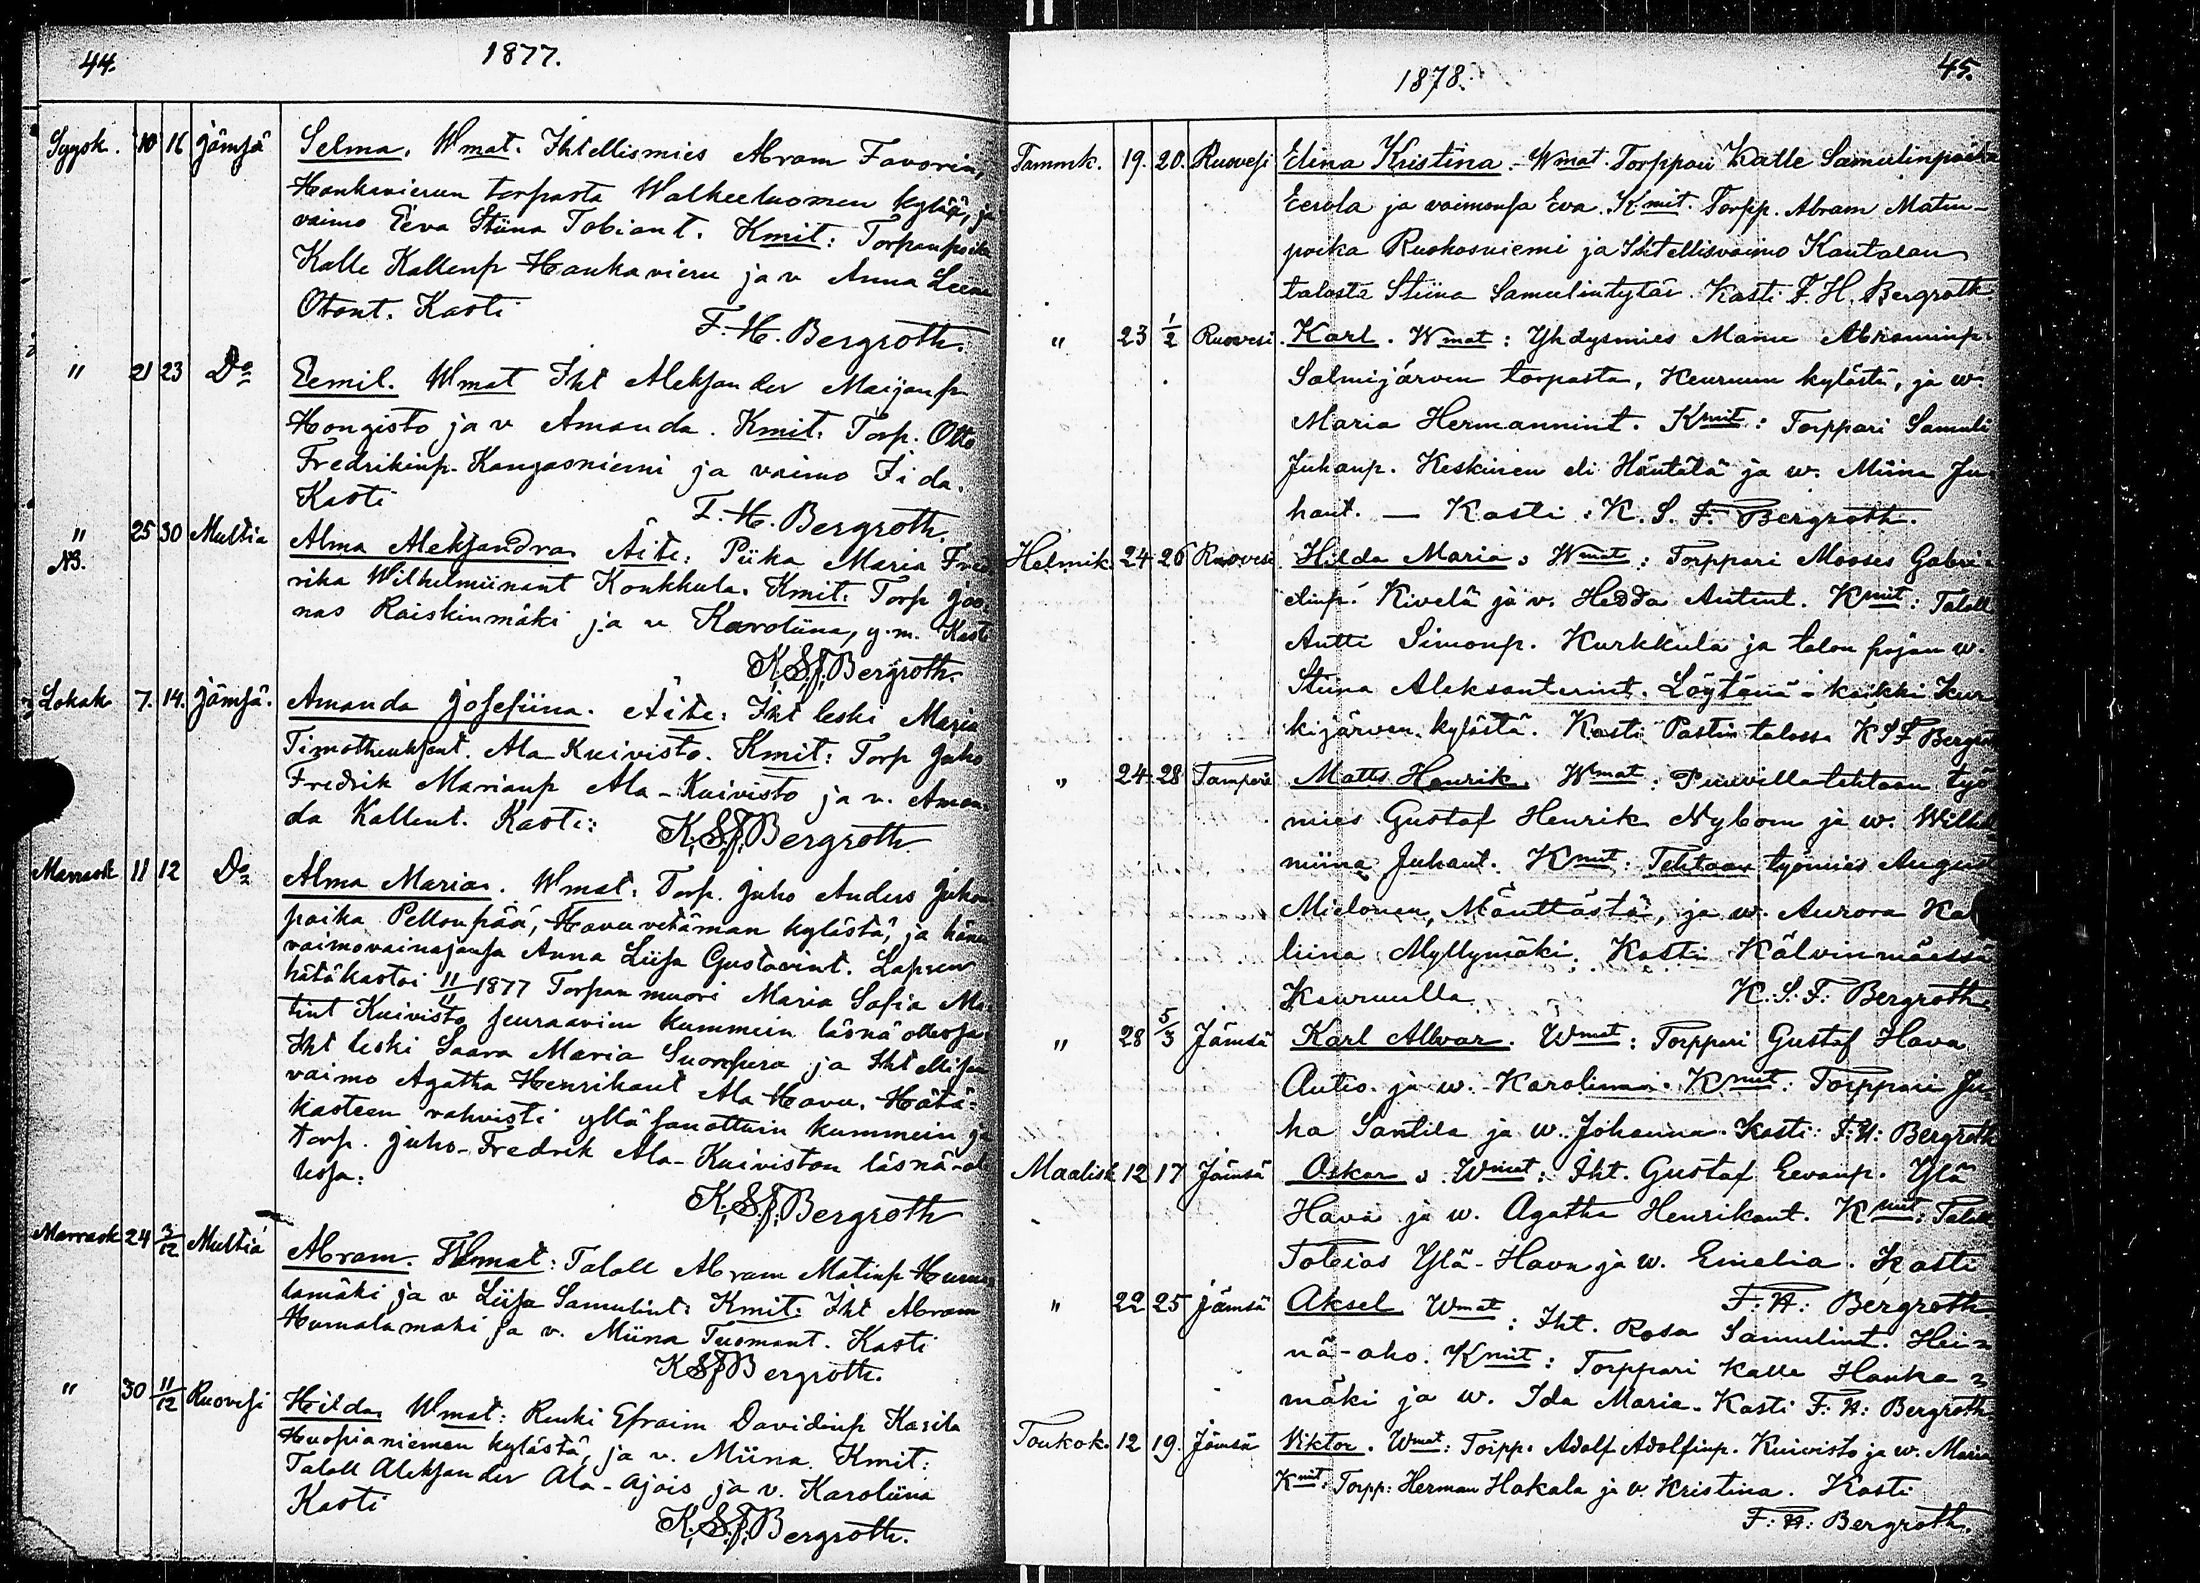 44. 1877.
Syysk. 10 16 Jämsä Selma. Wmat. Ihtellismies Abram Favorin,
Hankavieren torpasta Walkeeluomen kylää, ja
vaimo Eeva Stiina Tobiant. Kmit: Torpanpoika
Kalle Kallenp Hankavieru ja v Anna Leena
Otont. Kasti
F. H. Bergroth.
" 21 23 Do Eemil. Wmat Iht Aleksander Maijanp
Hongisto ja v Amanda. Kmit: Torp. Otto
Fredrikinp. Kangasniemi ja vaimo Fida.
Kasti
F. H. Bergroth.
" 25 30 Multia Alma Aleksandra Äite: Piika Maria Fred
NB.
rika Wilhelmiinant Konkkula. Kmit: Torp Joo-
nas Raiskinmäki ja v Karoliina, y.m. Kasti
K.S.F. Bergroth.
Lokak 7. 14. Jämsä. Amanda Josefiina. Äite: Iht leski Maria
Timotheuksent. Ala-Kuivisto. Kmit: Torp Juho
Fredrik Marianp Ala-Kuivisto ja v. Aman
da Kallent. Kasti:
K.S.F. Bergroth
Marrask 11 12 Do Alma Maria. Wmat: Torp. Juho Anders Juhon
poika Pellonpää, Havuvetämän kylästä, ja hänen
vaimovainajansa Anna Liisa Gustavint. Lapsen
hätäkastoi 11/11 1877 Torpan muori Maria Sofia Ma
tint Kuivisto seuraavien kummein läsnä ollessa
Iht leski Saara Maria Suorsura ja Ihtellisen
vaimo Agatha Henrikant Ala Havu. Hätä-
kasteen vahvisti yllä sanottuin kummein ja
torp. Juho-Fredrik Ala-Kuiviston läsnä-ol
lessa:
K.S.F. Bergroth
Marrask 24 3/12 Multia Abram. Wmat: Taloll Abram Matinp Huma
lamäki ja v Liisa Samulint. Kmit: Iht Abram
Humalamaki ja v. Miina Tuomant. Kasti
K.S.F. Bergroth.
" 30 11/12 Ruovesi Hilda Wmat: Renki Efraim Davidinp Kasila
Huopianiemen kylästä, ja v. Miina. Kmit:
Taloll Aleksander Ala-Ajois ja v. Karoliina
Kasti
K.S.F. Bergroth.
1878. 45.
Tammk. 19. 20. Ruovesi Elina Kristina. Wmat. Torppari Kalle Samulinpoika
Eerola ja vaimonsa Eva. Kmit. Torpp. Abram Matin-
poika Ruokosniemi ja Ihtellisvaimo Kantalan
talosta Stiina Samulintytär. Kasti F. H. Bergroth
" 23 1/2 Ruovesi. Karl. Wmat: Yhdysmies Manu Abraminp.
Salmijärven torpasta, Keuruun kylästä, ja w.
Maria Hermannint. Kmit: Torppari Samuli
Juhanp. Keskinen eli Häntälä ja w. Miina Ju-
hant. — Kasti: K. S. F. Bergroth.
Helmik. 24 26 Ruovesi Hilda Maria: Wmat: Torppari Mooses Gabri-
elinp. Kivelä ja v. Hedda Antint. Kmit: Taloll
Antti Simonp. Kurkkula ja talon pojan w.
Stiina Aleksanterint. Löytänä - kaikki Kur
kijärven kylästä. Kasti Pastin talossa K S F Bergro
" 24 28 Tampere Matts Henrik Wmat: Puuvillatehtaan työ
mies Gustaf Henrik Nybom ja w. Wilhel
miina Juhant. Kmit: Tehtaan työmies August
Mielonen, Mänttästä, ja w. Aurora Ka
liina Myllymäki. Kasti Kälvinmäessä
Keuruulla K. S. F. Bergroth
" 28 5/3 Jämsä Karl Allvar. Wmat: Torppari Gustaf Hava
Autio ja w. Karolina. Kmit: Torppari Ju-
ha Santila ja w. Johanna. Kasti: F: H: Bergroth
Maalisk 12 17 Jämsä Oskar: Wmat: Iht. Gustaf Eevanp. Ylä
Hava ja w. Agatha Henrikant. Kmit: Taloll
Tobias Ylä-Havu ja w. Emelia. Kasti
F: H: Bergroth
" 22 25 Jämsä Aksel Wmat: Iht. Rosa Samulint. Hei-
nä-aho. Kmit: Torppari Kalle Hanka-
mäki ja w. Ida Maria. Kasti F: H: Bergroth
Toukok. 12 19. Jämsä Viktor. Wmat: Torpp. Adolf Adolfinp. Kuivisto ja w. Maria
Kmit: Torpp: Herman Hakala ja v. Kristina. Kasti
F: H: Bergroth.